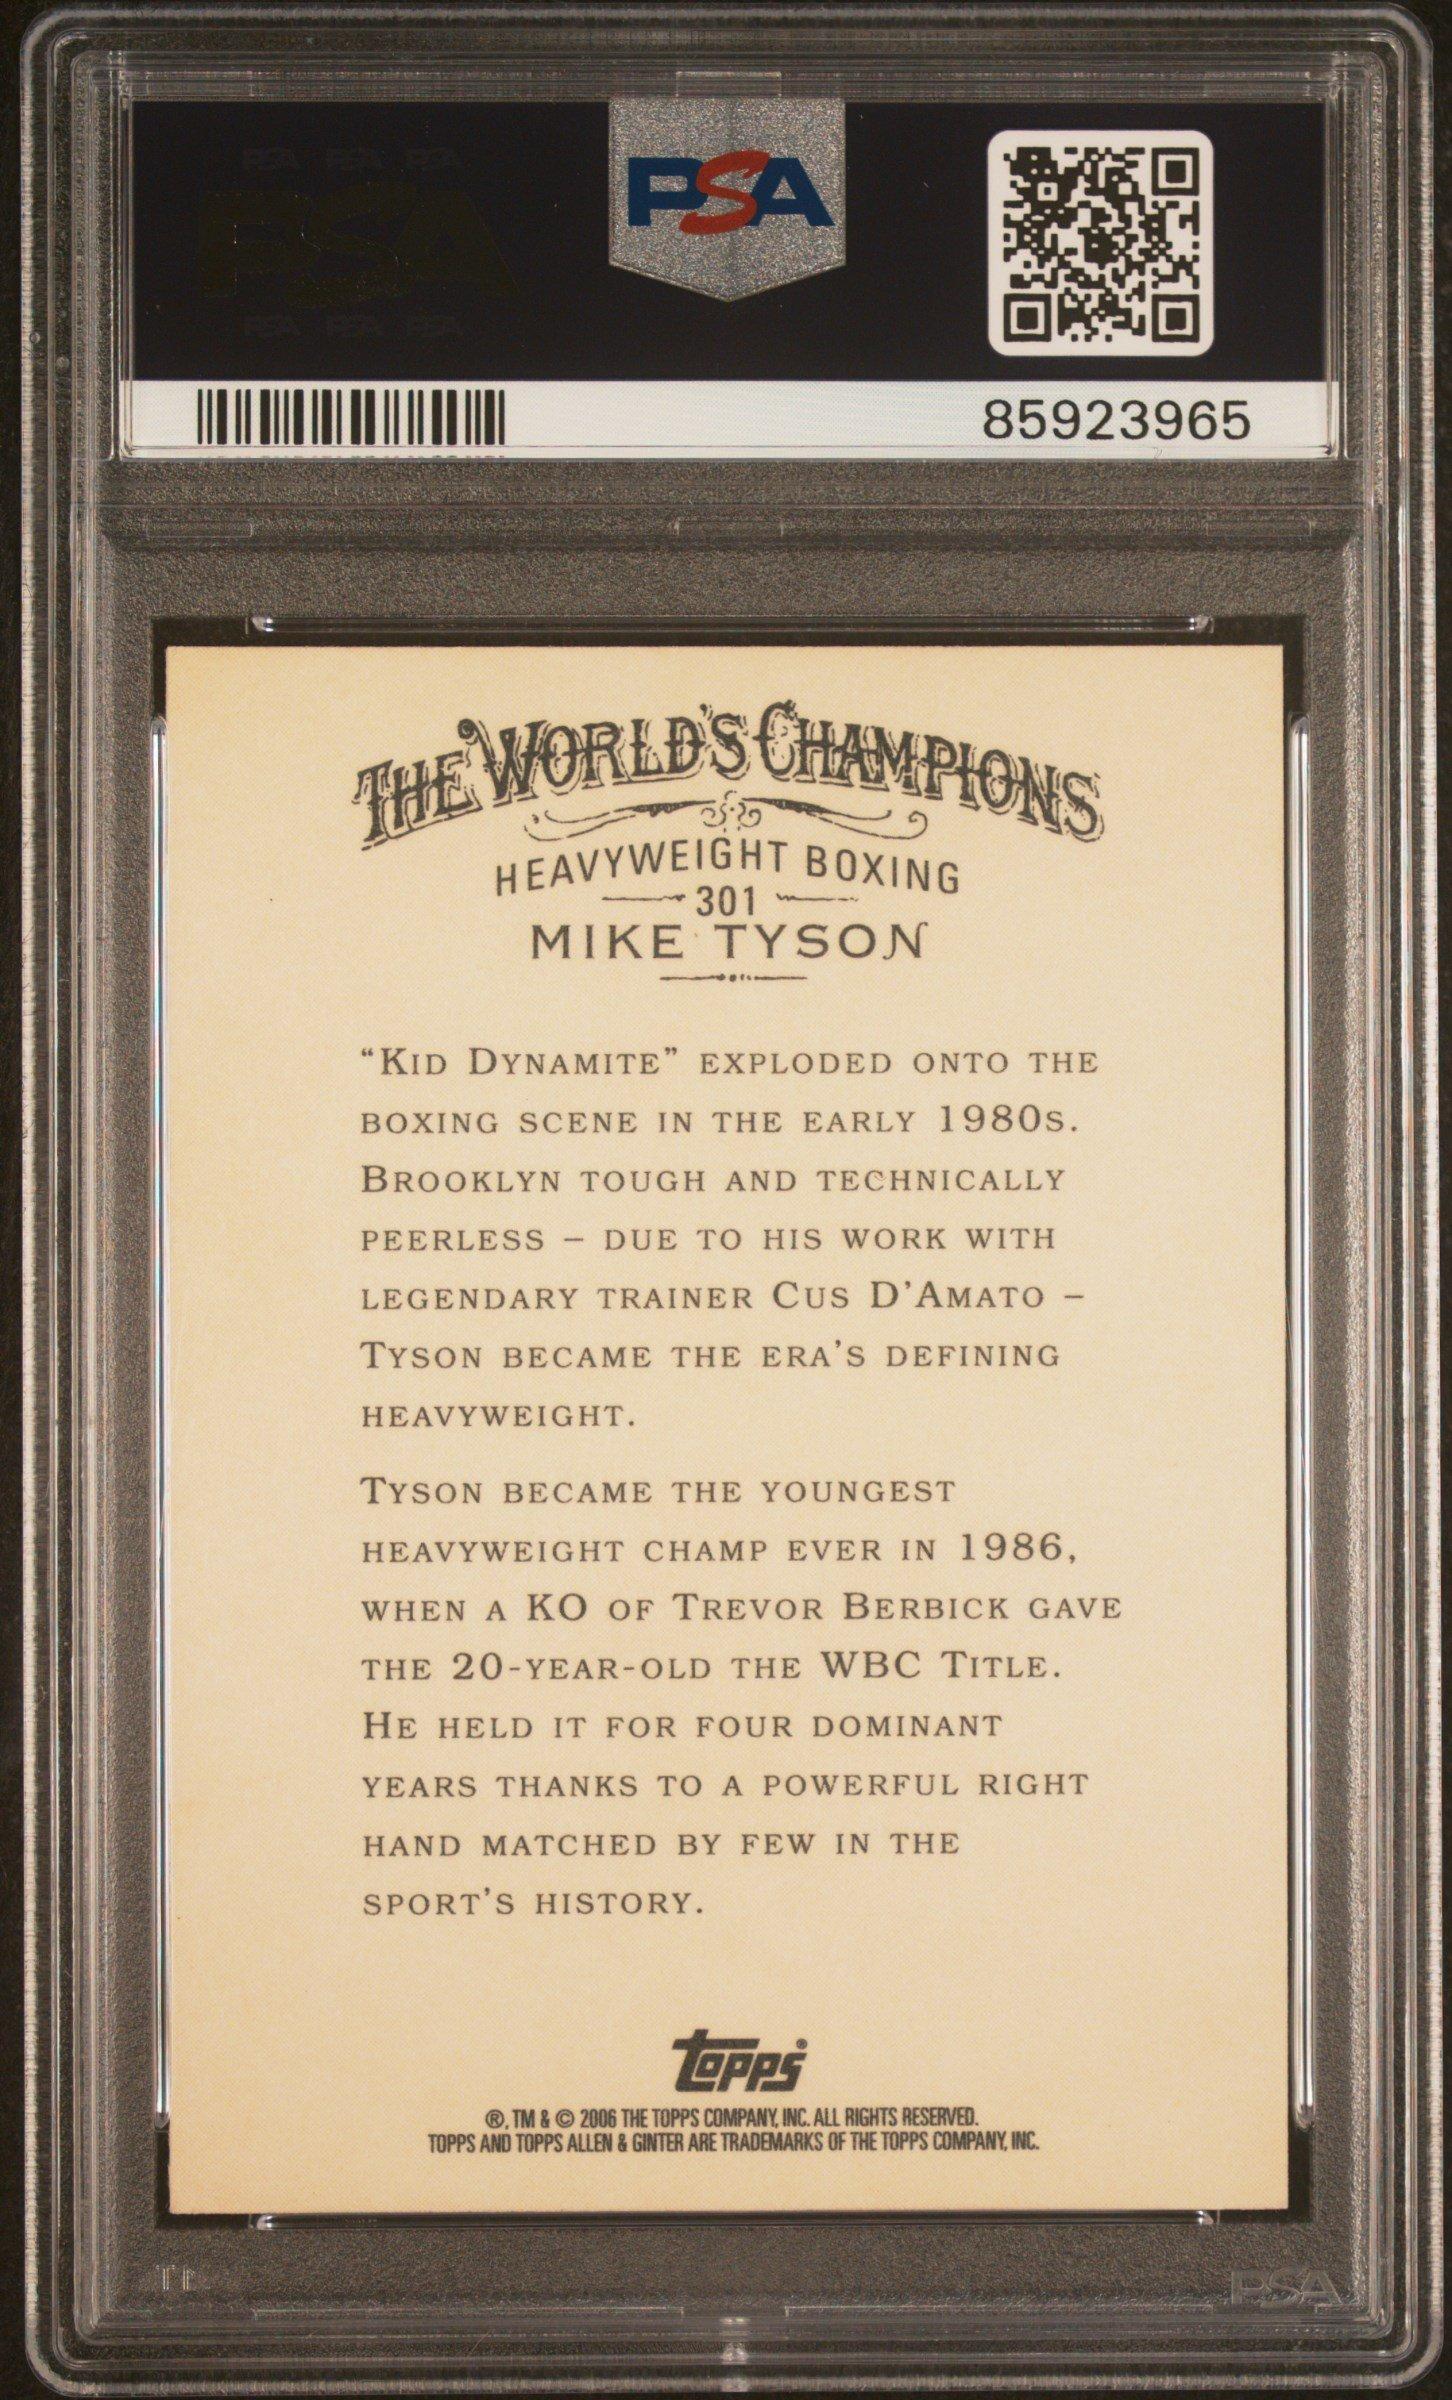 PSA
85923965
THE WORLD'S CHAMPIONS
HEAVYWEIGHT BOXING
301
MIKE TYSON
"KID DYNAMITE" EXPLODED ONTO THE
BOXING SCENE IN THE EARLY 1980S.
BROOKLYN TOUGH AND TECHNICALLY
PEERLESS – DUE TO HIS WORK WITH
LEGENDARY TRAINER CUS D'AMATO –
TYSON BECAME THE ERA'S DEFINING
HEAVYWEIGHT.
TYSON BECAME THE YOUNGEST
HEAVYWEIGHT CHAMP EVER IN 1986,
WHEN A KO OF TREVOR BERBICK GAVE
THE 20-YEAR-OLD THE WBC TITLE.
HE HELD IT FOR FOUR DOMINANT
YEARS THANKS TO A POWERFUL RIGHT
HAND MATCHED BY FEW IN THE
SPORT'S HISTORY.
topps
®, TM & © 2006 THE TOPPS COMPANY, INC. ALL RIGHTS RESERVED.
TOPPS AND TOPPS ALLEN & GINTER ARE TRADEMARKS OF THE TOPPS COMPANY, INC.
PSA